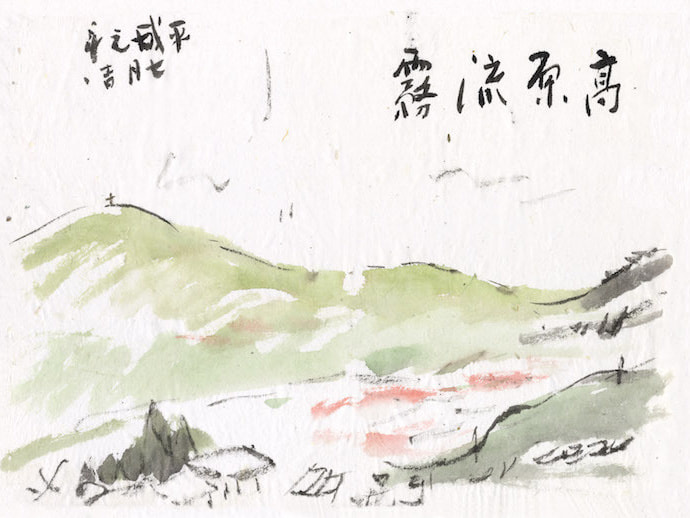 高原流霧
平成元年
七月吉